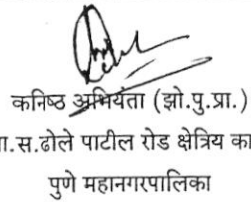 कनिष्ठ अभियंता (झो.पु.प्रा.)
ा.स.ढोले पाटील रोड क्षेत्रिय का
पुणे महानगरपालिका